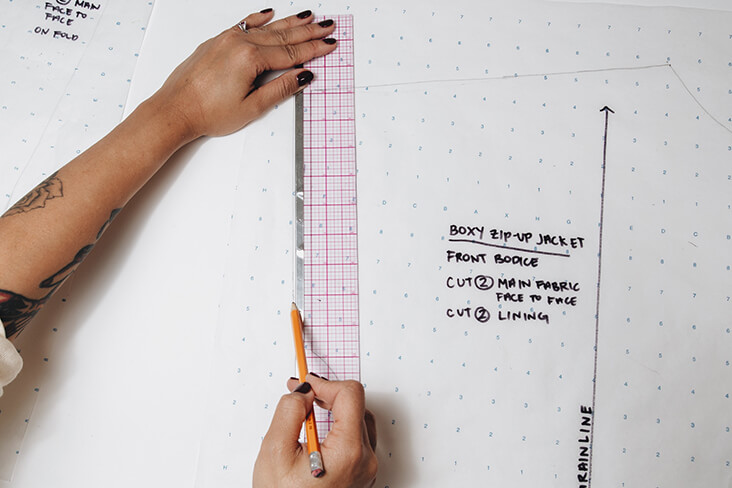 ② MAIN
FACE TO
FACE
ON FOLD
BOXY ZIP-UP JACKET
FRONT BODICE
CUT ② MAIN FABRIC
FACE TO FACE
CUT ② LINING
RAINLINE